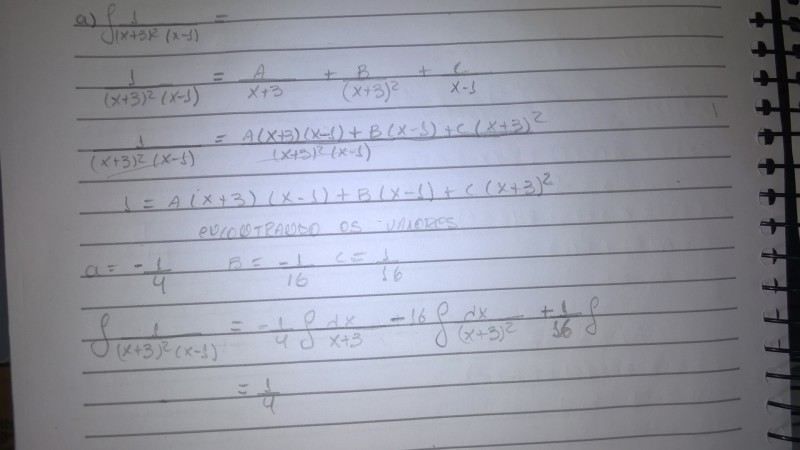 a) ∫ 1/((x+3)² (x-1)) =
1/((x+3)² (x-1)) = A/(x+3) + B/(x+3)² + C/(x-1)
1/((x+3)² (x-1)) = (A(x+3)(x-1) + B(x-1) + C(x+3)²)/((x+3)² (x-1))
1 = A(x+3) (x-1) + B(x-1) + C(x+3)²
ENCONTRANDO OS VALORES
a = -1/4 B = -1/16 C = 1/16
∫ 1/((x+3)² (x-1)) = -1/4 ∫ dx/(x+3) - 16 ∫ dx/(x+3)² + 1/16 ∫
= 1/4